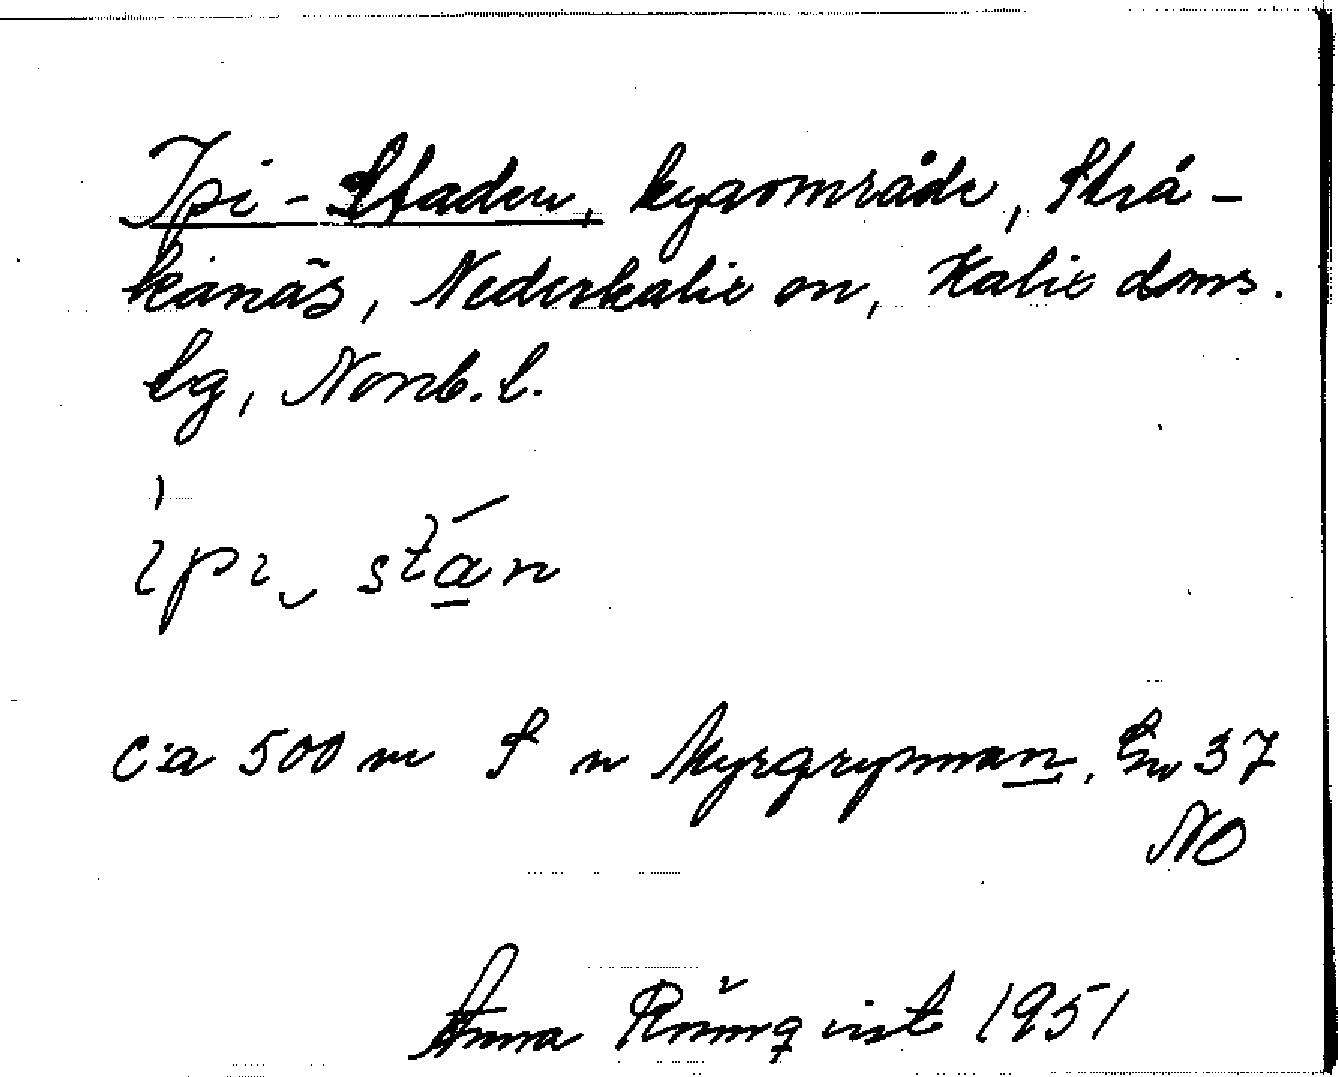 Ipi-Staden, byaområde, Strå-
kanäs, Nederkalix sn, Kalix doms.
lg, Norrb. l.
ipi stán
c:a 500 m S n Myrgrynnan, Ln 37
NO
Anna Rönnqvist 1951